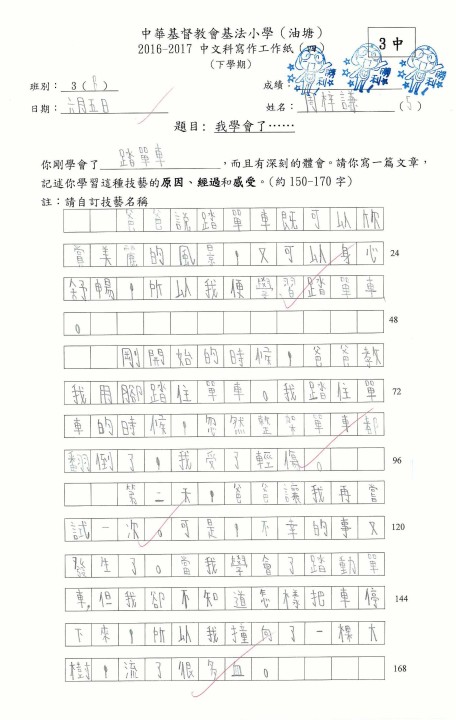 中華基督教會基法小學（油塘）
2016-2017 中文科寫作工作紙（四）
（下學期）
3中
班別： 3 ( )
成績：
日期： 六月五日
姓名： 周梓謙 ( 5 )
題目: 我學會了……
你剛學會了 踏單車 ，而且有深刻的體會。請你寫一篇文章，
記述你學習這種技藝的原因、經過和感受。(約 150-170 字)
註：請自訂技藝名稱
爸爸說踏單車既可以欣
賞美麗的風景，又可以身心 24
舒暢，所以我便學習踏單車
。 48
剛開始的時候，爸爸教
我用腳踏住單車。我踏住單 72
車的時候，忽然整架單車都
翻倒了，我受了輕傷。 96
第二天，爸爸讓我再嘗
試一次。可是，不幸的事又 120
發生了。當我學會了踏動單
車,但我卻不知道怎樣把車停 144
下來，所以我撞向了一棵大
樹，流了很多血。 168